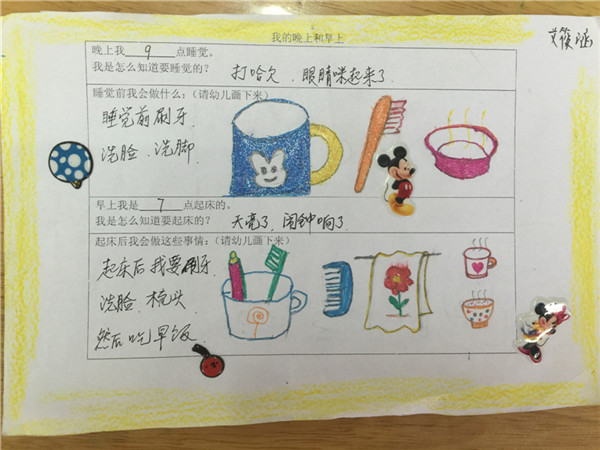 我的晚上和早上
晚上我 9 点睡觉。
我是怎么知道要睡觉的? 打哈欠、眼睛眯起来了
睡觉前我会做什么:(请幼儿画下来)
睡觉前刷牙
洗脸、洗脚
早上我是 7 点起床的。
我是怎么知道要起床的? 天亮了,闹钟响了
起床后我会做这些事情:(请幼儿画下来)
起床后我要刷牙
洗脸、梳头
然后吃早饭